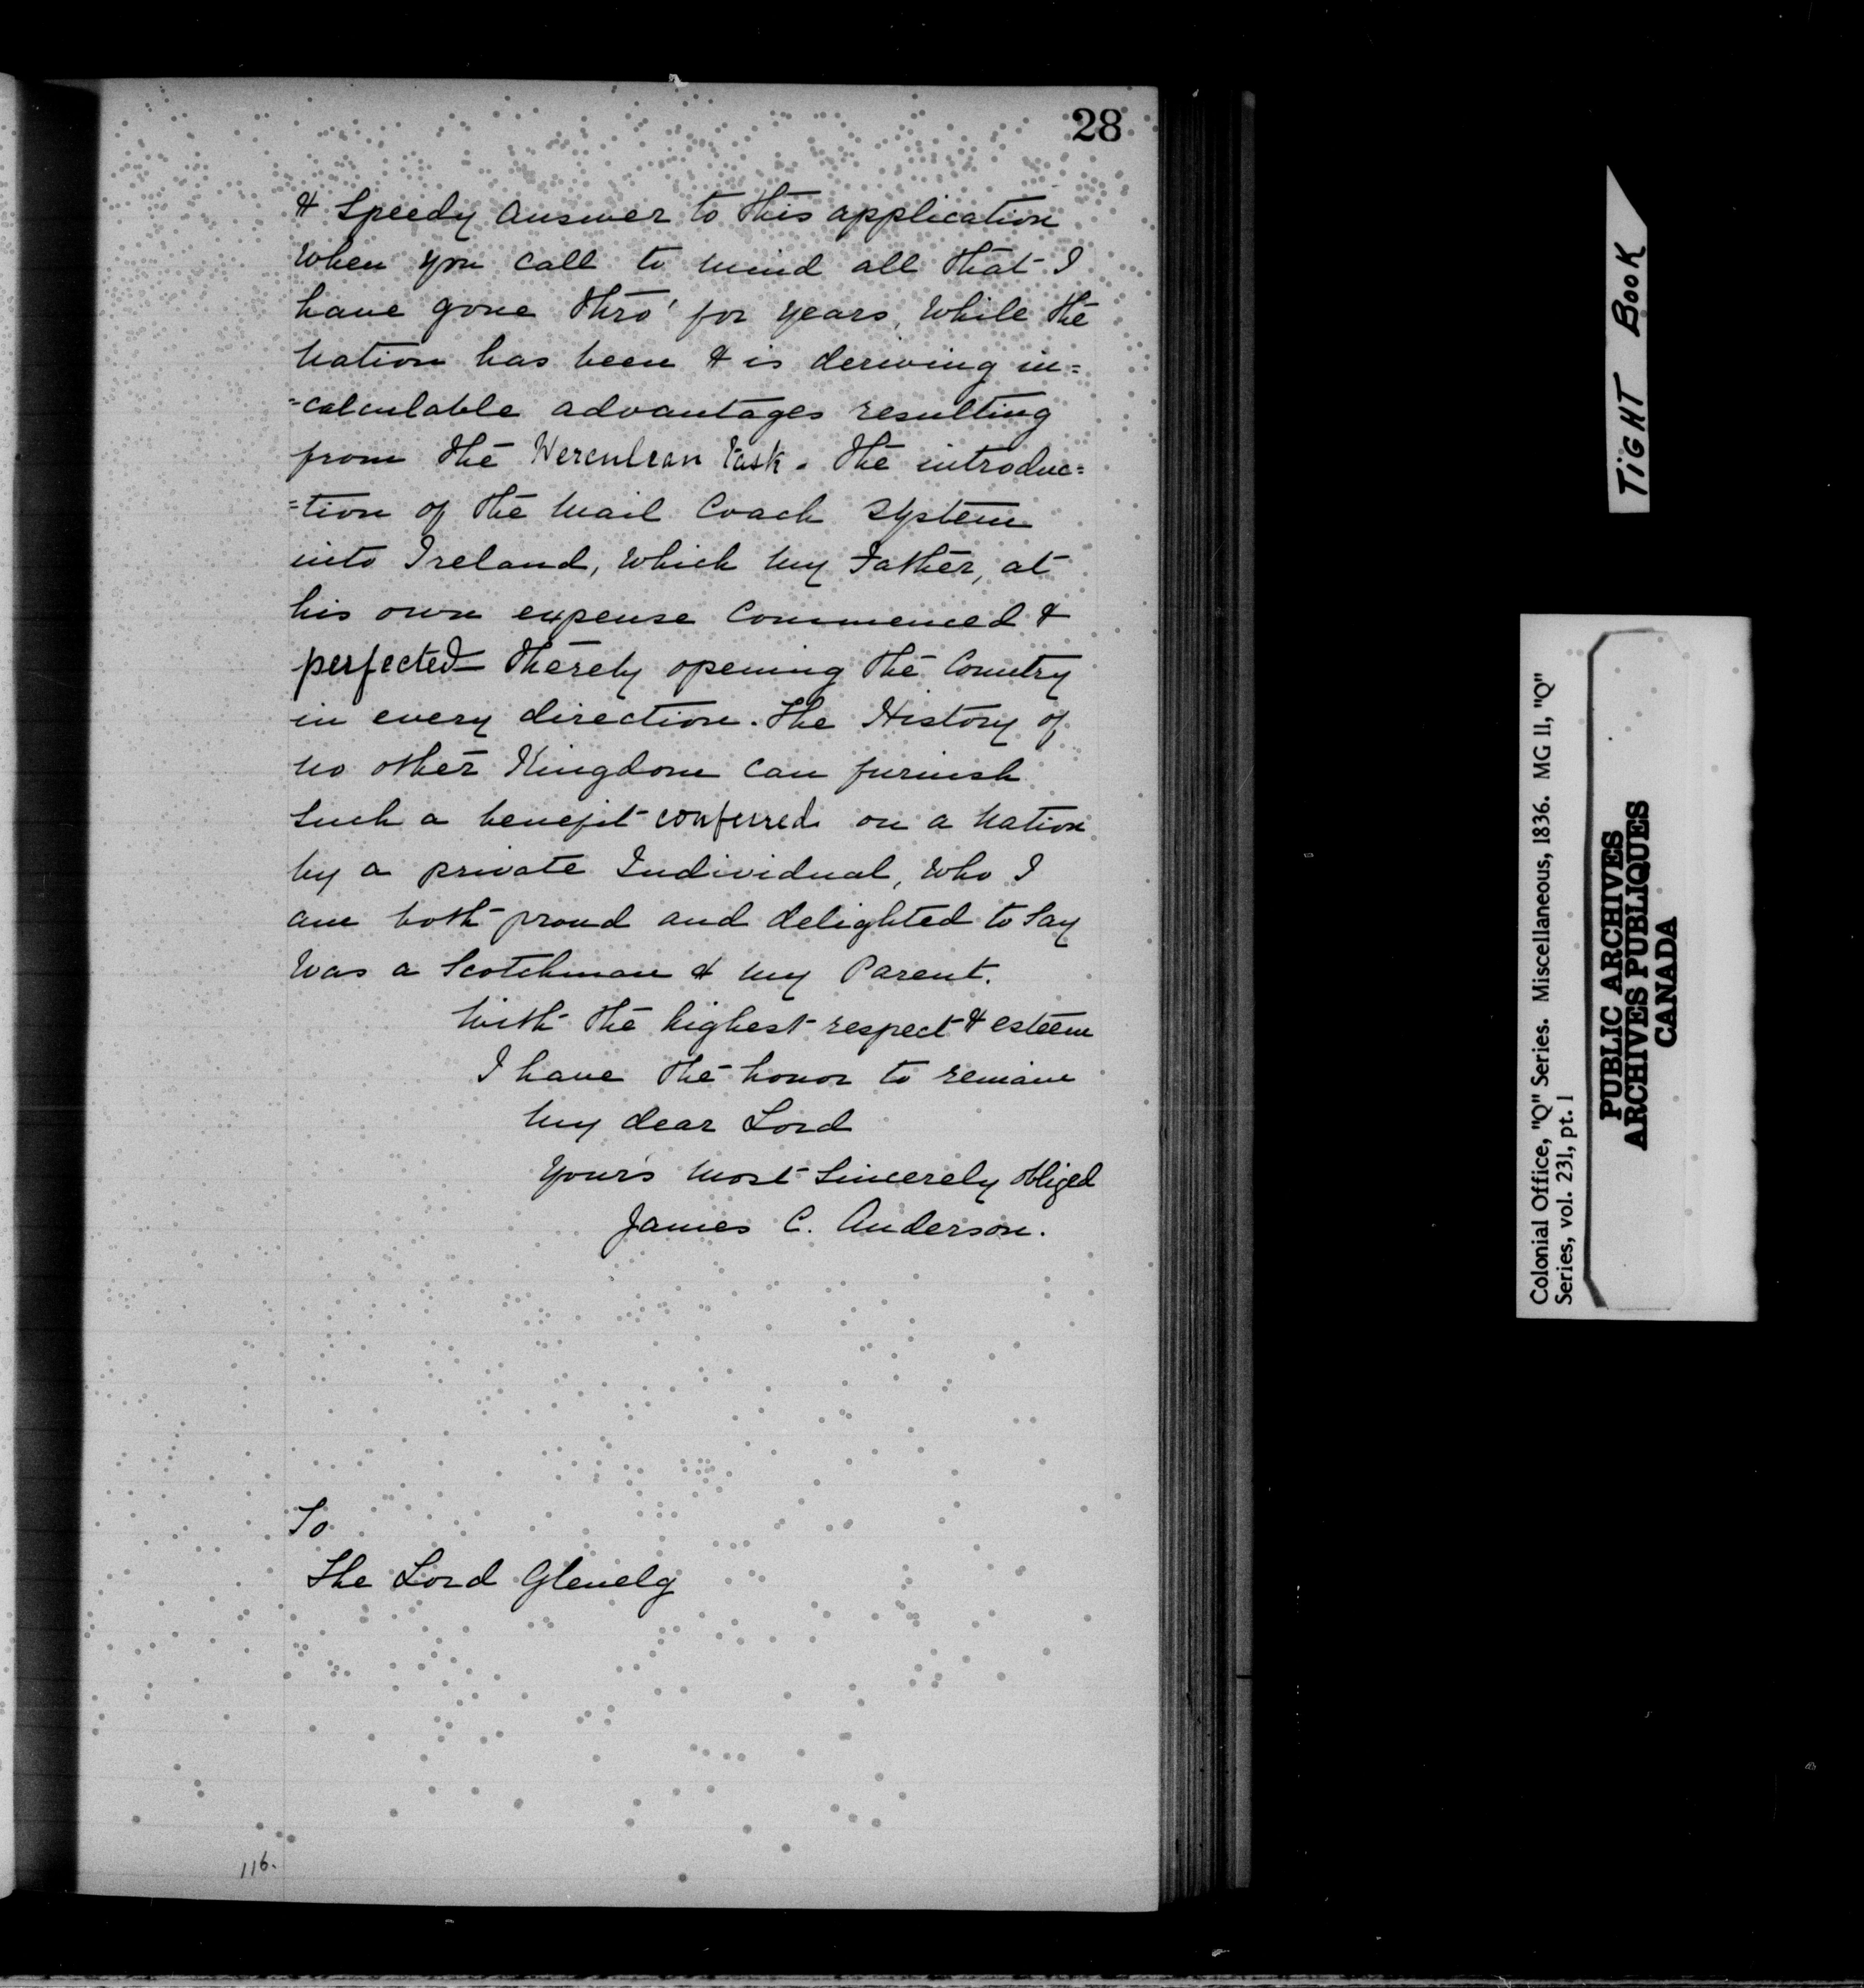 28
& Speedy Answer to this application
When you call to mind all that I
have gone thro' for years, While the
Nation has been & is deriving in=
=calculable advantages resulting
from the Herculean Task. The introduc=
=tion of the Mail Coach System
into Ireland, Which my Father, at
his own expense Commenced &
perfected thereby opening the Country
in every direction. The History of
no other Kingdom can furnish
Such a benefit conferred on a Nation
by a private Individual, Who I
am both proud and delighted to Say
Was a Scotchman & my Parent.
With the highest respect & esteem
I have the honor to remain
My dear Lord
Your's most Sincerely obliged
James C. Anderson.
To
The Lord Glenelg
116.
TIGHT BOOK
Colonial Office, "Q" Series. Miscellaneous, 1836. MG 11, "Q"
Series, vol. 231, pt. 1
PUBLIC ARCHIVES
ARCHIVES PUBLIQUES
CANADA